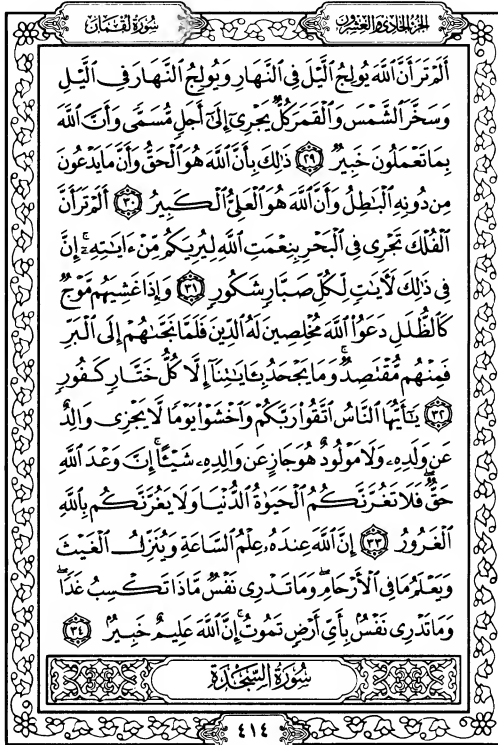 الجزء الحادي والعشرون
سورة لقمان
أَلَمْ تَرَ أَنَّ ٱللَّهَ يُولِجُ ٱلَّيْلَ فِى ٱلنَّهَارِ وَيُولِجُ ٱلنَّهَارَ فِى ٱلَّيْلِ
وَسَخَّرَ ٱلشَّمْسَ وَٱلْقَمَرَ كُلٌّ يَجْرِىٓ إِلَىٰٓ أَجَلٍ مُّسَمًّى وَأَنَّ ٱللَّهَ
بِمَا تَعْمَلُونَ خَبِيرٌ ٢٩ ذَٰلِكَ بِأَنَّ ٱللَّهَ هُوَ ٱلْحَقُّ وَأَنَّ مَا يَدْعُونَ
مِن دُونِهِ ٱلْبَٰطِلُ وَأَنَّ ٱللَّهَ هُوَ ٱلْعَلِىُّ ٱلْكَبِيرُ ٣٠ أَلَمْ تَرَ أَنَّ
ٱلْفُلْكَ تَجْرِى فِى ٱلْبَحْرِ بِنِعْمَتِ ٱللَّهِ لِيُرِيَكُم مِّنْ ءَايَٰتِهِۦٓ ۚ إِنَّ
فِى ذَٰلِكَ لَءَايَٰتٍ لِّكُلِّ صَبَّارٍ شَكُورٍ ٣١ وَإِذَا غَشِيَهُم مَّوْجٌ
كَٱلظُّلَلِ دَعَوُا۟ ٱللَّهَ مُخْلِصِينَ لَهُ ٱلدِّينَ فَلَمَّا نَجَّىٰهُمْ إِلَى ٱلْبَرِّ
فَمِنْهُم مُّقْتَصِدٌ ۚ وَمَا يَجْحَدُ بِـَٔايَٰتِنَآ إِلَّا كُلُّ خَتَّارٍ كَفُورٍ
٣٢ يَٰٓأَيُّهَا ٱلنَّاسُ ٱتَّقُوا۟ رَبَّكُمْ وَٱخْشَوْا۟ يَوْمًا لَّا يَجْزِى وَالِدٌ
عَن وَلَدِهِۦ وَلَا مَوْلُودٌ هُوَ جَازٍ عَن وَالِدِهِۦ شَيْـًٔا ۚ إِنَّ وَعْدَ ٱللَّهِ
حَقٌّ ۖ فَلَا تَغُرَّنَّكُمُ ٱلْحَيَوٰةُ ٱلدُّنْيَا وَلَا يَغُرَّنَّكُم بِٱللَّهِ
ٱلْغَرُورُ ٣٣ إِنَّ ٱللَّهَ عِندَهُۥ عِلْمُ ٱلسَّاعَةِ وَيُنَزِّلُ ٱلْغَيْثَ
وَيَعْلَمُ مَا فِى ٱلْأَرْحَامِ ۖ وَمَا تَدْرِى نَفْسٌ مَّاذَا تَكْسِبُ غَدًا ۖ
وَمَا تَدْرِى نَفْسٌۢ بِأَىِّ أَرْضٍ تَمُوتُ ۚ إِنَّ ٱللَّهَ عَلِيمٌ خَبِيرٌۢ ٣٤
سُورَةُ السَّجْدَةِ
٤١٤